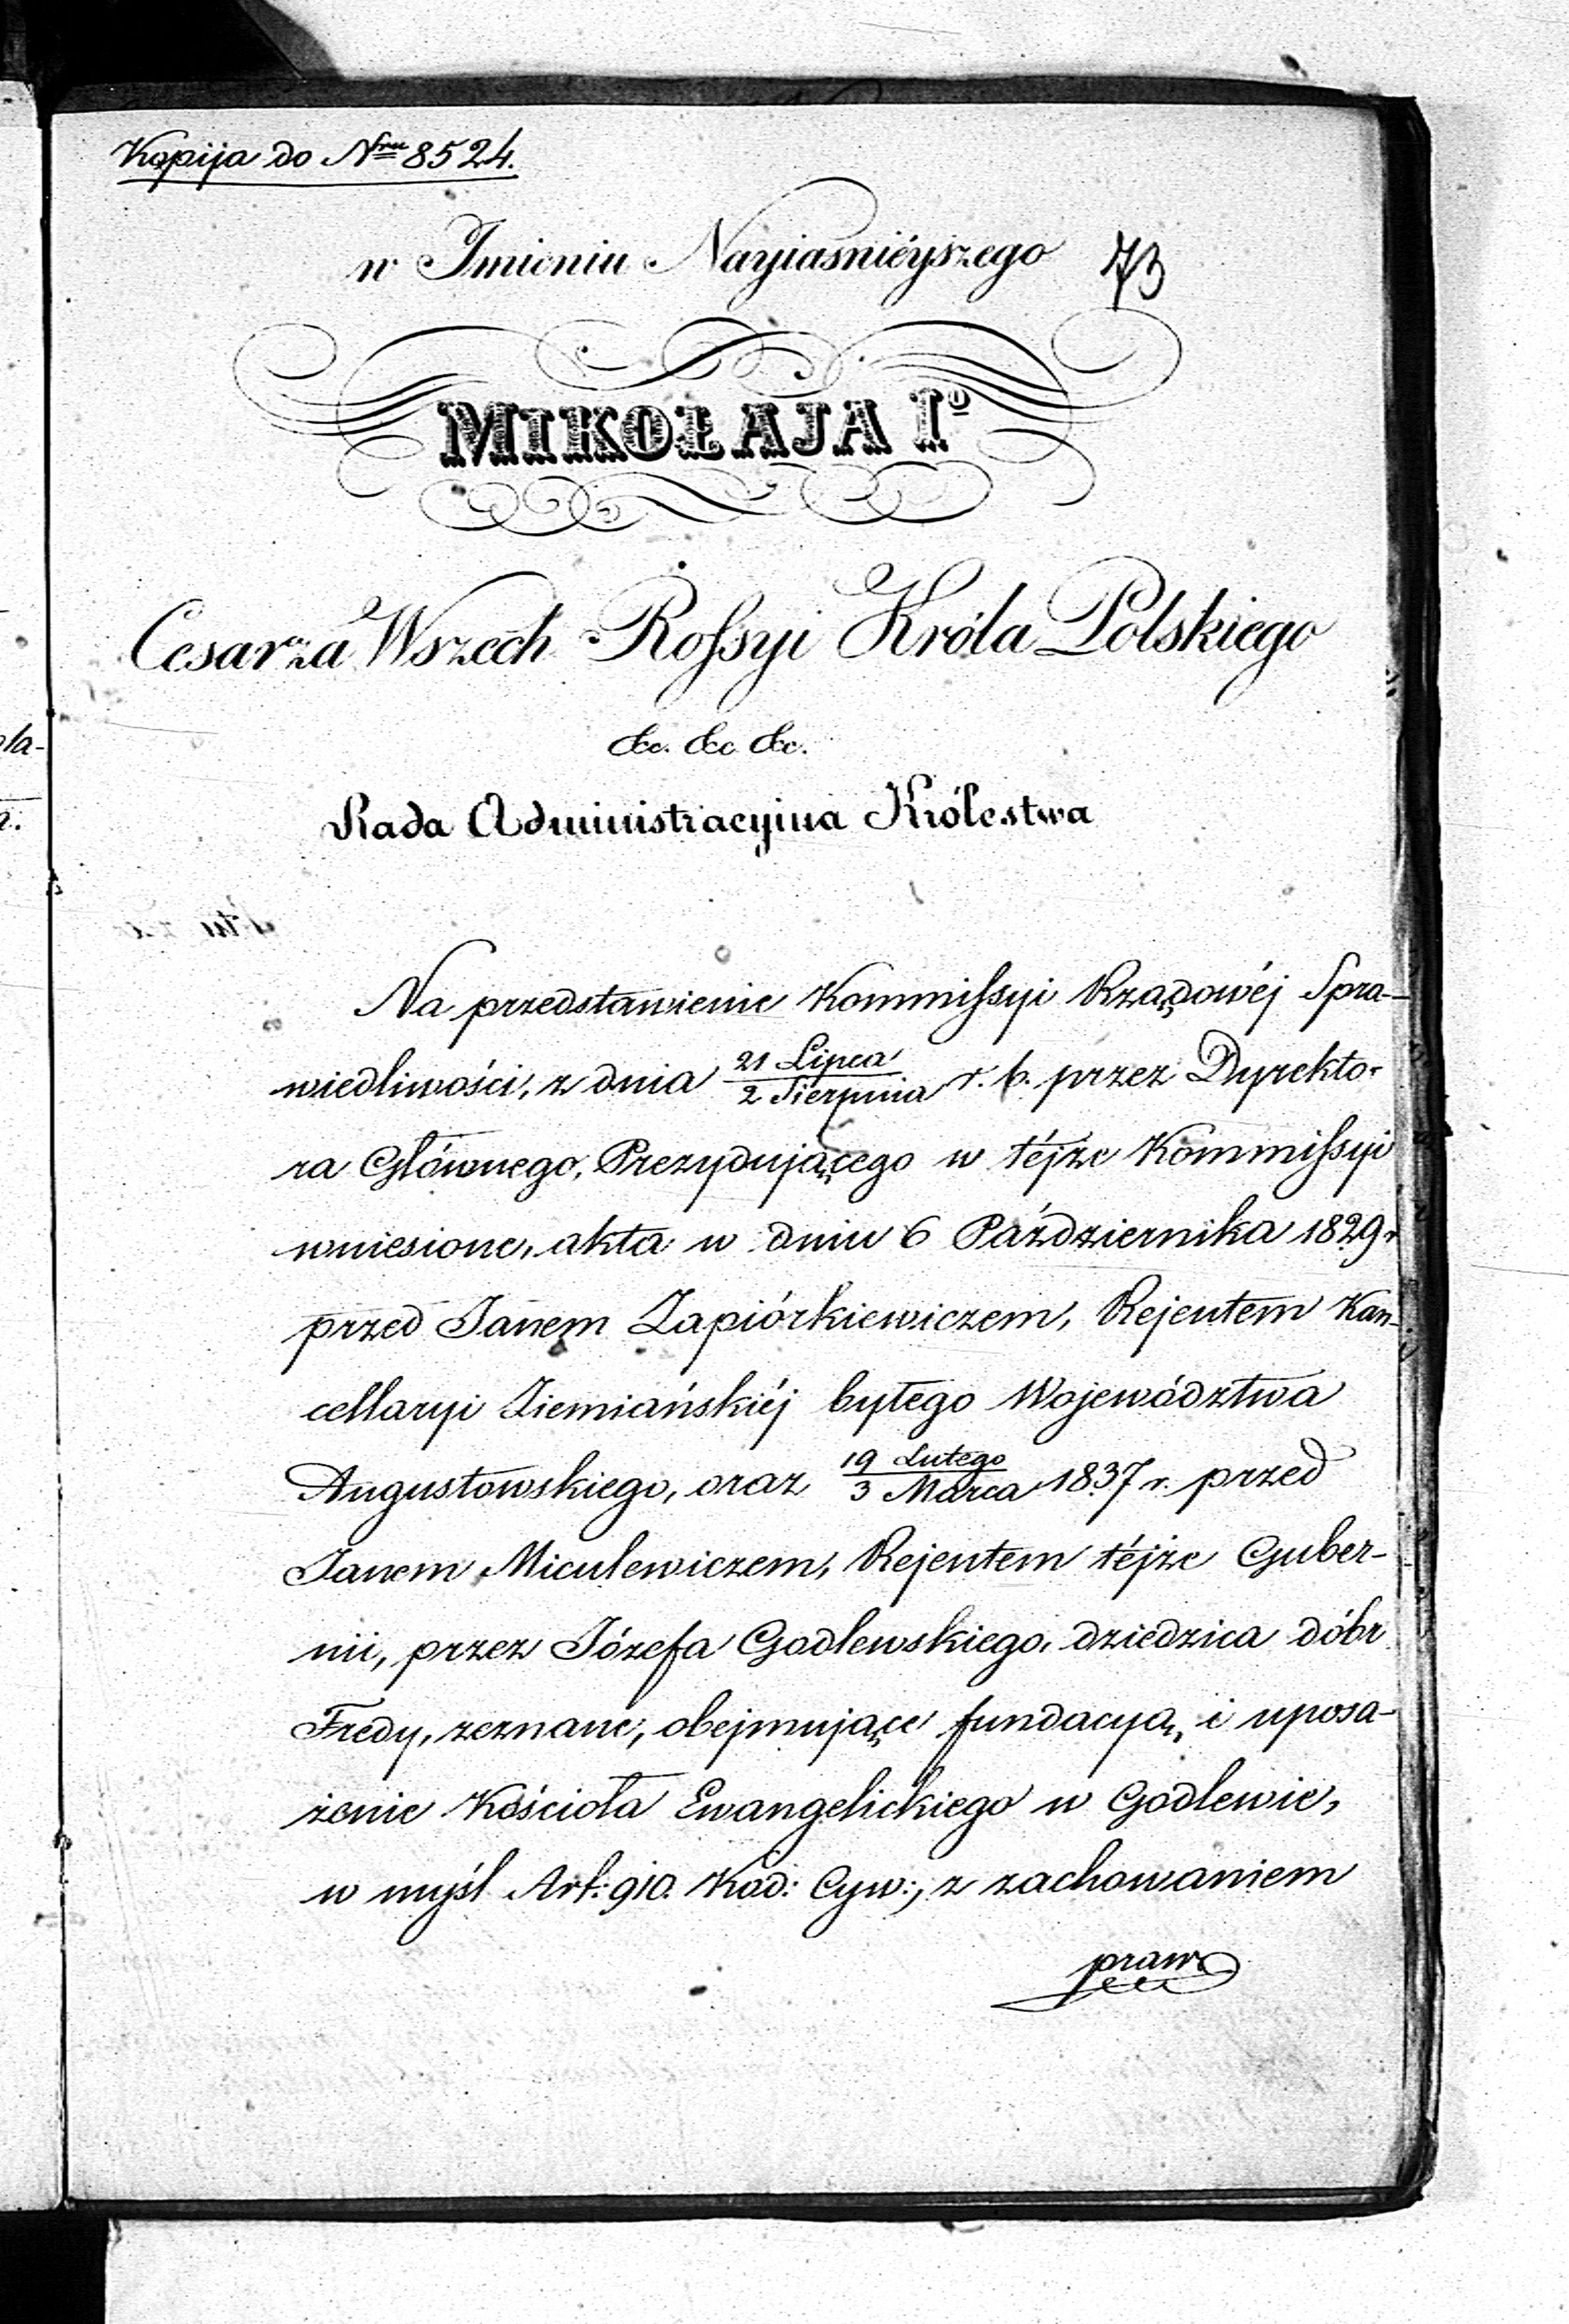 Kopija do Nru 8524.
w Imieniu Nayiaśnieyszego 73
MIKOŁAJA Igo
Cesarza Wszech Rossyi Króla Polskiego
&c. &c. &c.
Rada Administracyina Królestwa
Na przedstawienie Kommissyi Rządowéj Spra-
wiedliwości, z dnia 21 Lipca/2 Sierpnia r. b. przez Dyrekto-
ra Głównego, Prezydującego w téjże Kommissyi
wniesione, akta w dniu 6 Października 1829 r
przed Janem Zapiórkiewiczem, Rejentem Kan-
cellaryi Ziemiańskiéj byłego Województwa
Augustowskiego, oraz 19 Lutego/3 Marca 1837 r. przed
Janem Miculewiczem, Rejentem téjże Guber-
nii, przez Józefa Godlewskiego, dziedzica dóbr
Fredy, zeznane, obejmujące fundacyą, i uposa-
żenie Kościoła Ewangelickiego w Godlewie,
w myśl Art: 910. Kod: Cyw:, z zachowaniem
praw